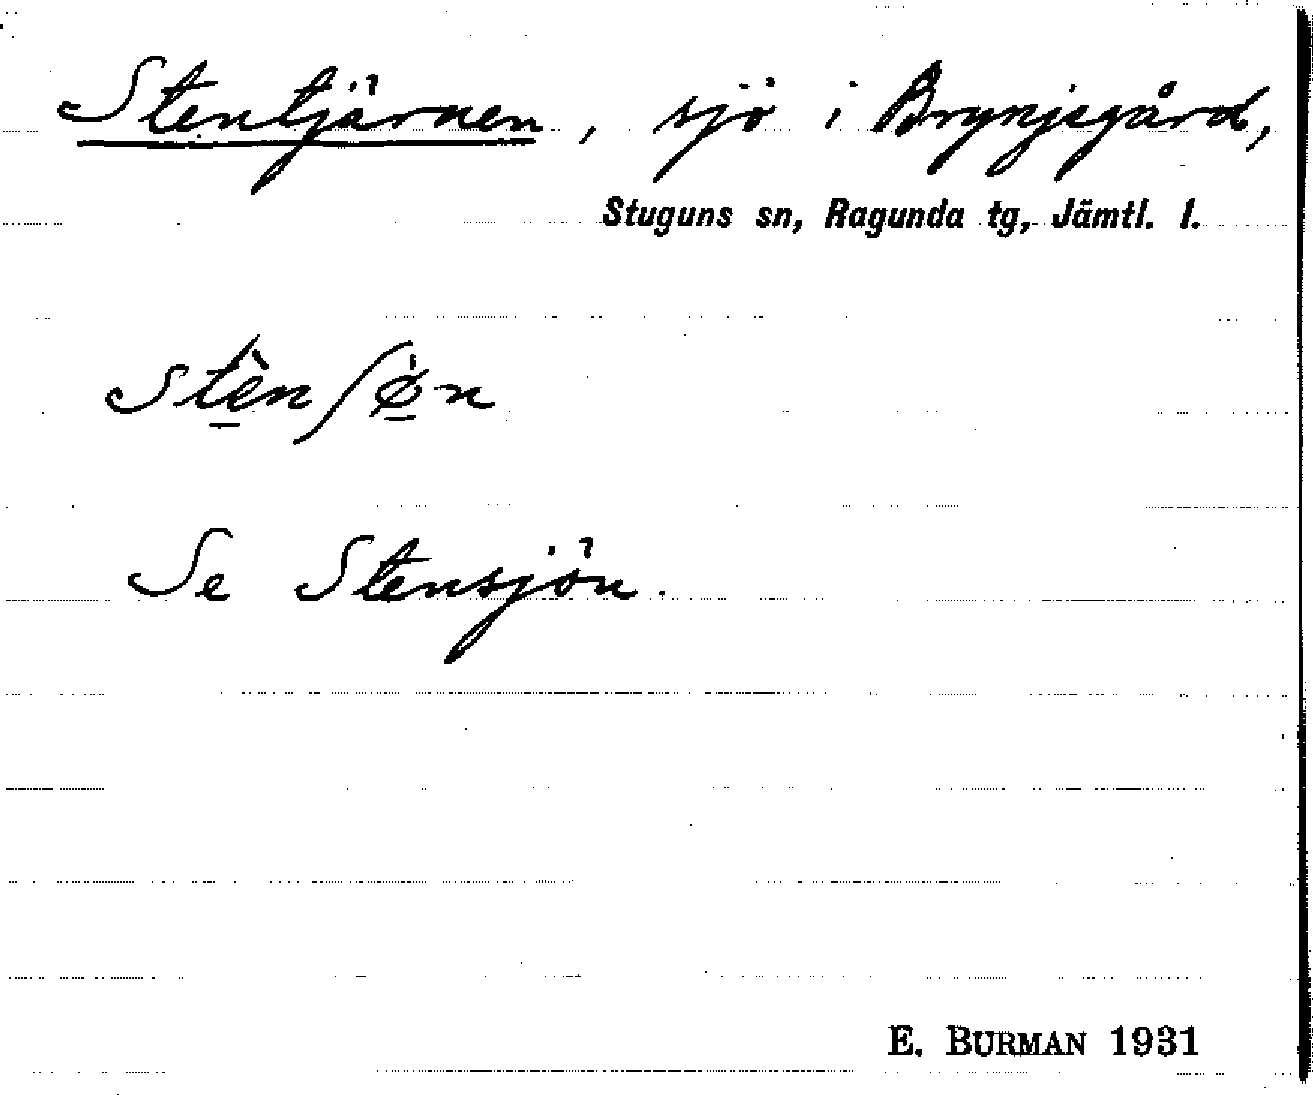 Stentjärnen, sjö i Brynjegård,
Stuguns sn, Ragunda tg, Jämtl. l.
stèn ʃø̀n
Se Stensjön.
E. BURMAN 1931